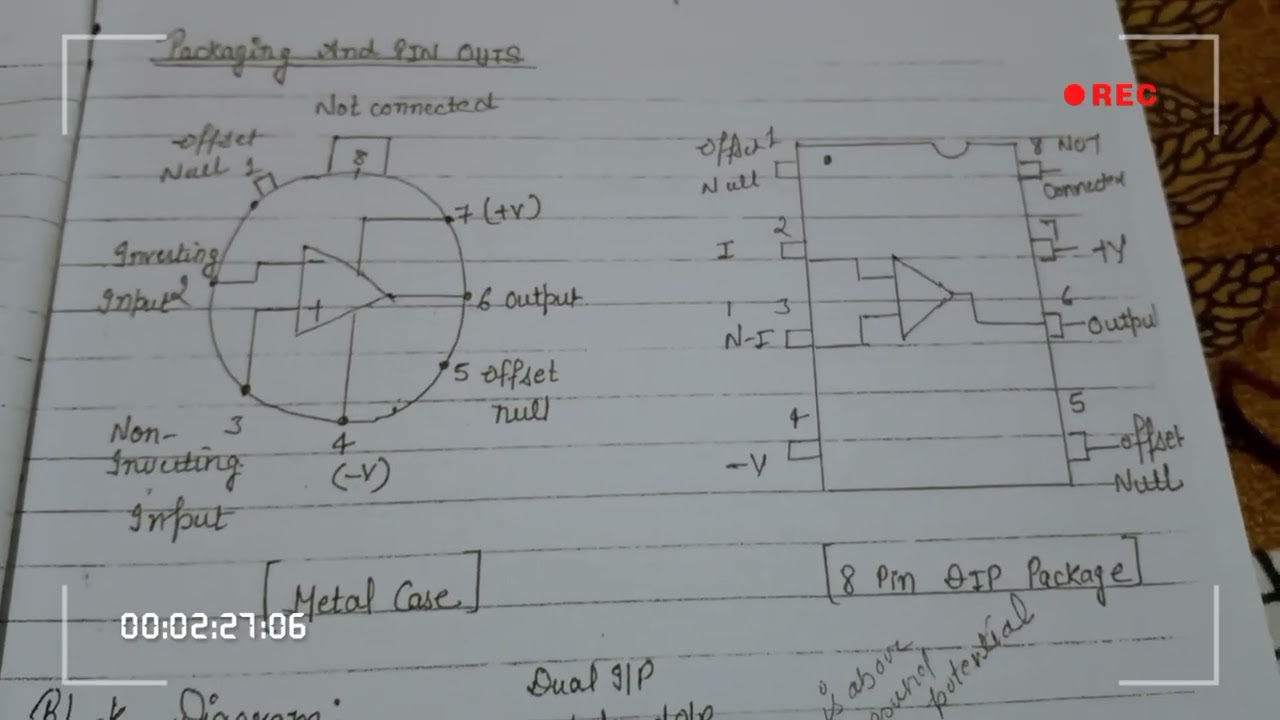 Packaging And PIN OUTS
REC
Not connected
Offset
Null 1
8
7 (+V)
Inverting
Input 2
-
+
6 output
5 offset
null
3
Non-
Inverting
Input
4
(-V)
[Metal Case]
Offset 1
Null
8 NOT
Connected
2
I
7
+V
3
N-I
6
Output
4
-V
5
offset
Null
[8 Pin DIP Package]
00:02:27:06
Dual I/P
is above
potential
Diagram: